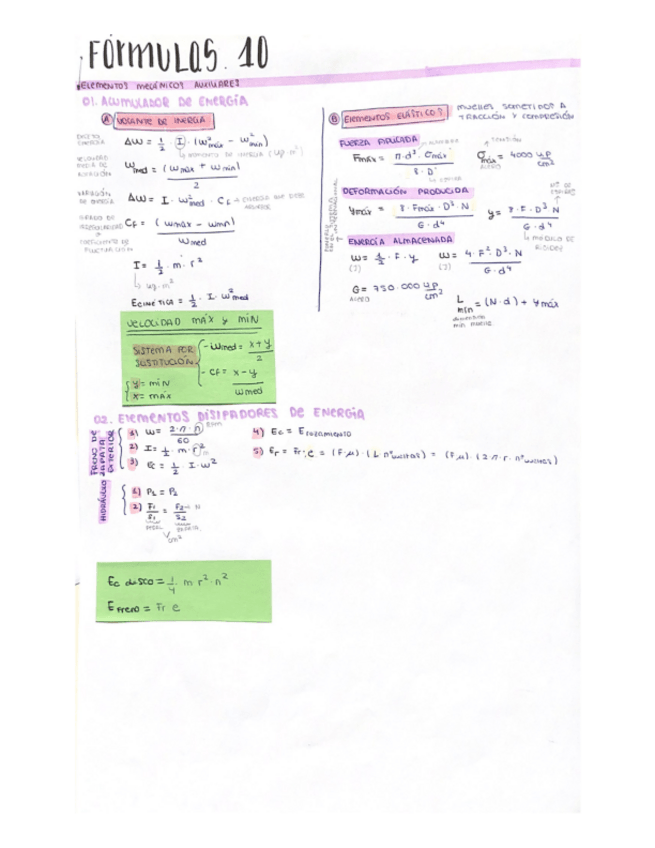 FÓRMULAS. 10
ELEMENTOS MECÁNICOS AUXILIARES
01. ACUMULADOR DE ENERGÍA
A VOLANTE DE INERCIA
ΔW = 1/2 · I · (W²máx − W²mín)
MOMENTO DE INERCIA (kg·m²)
Wmed = (Wmáx + Wmín) / 2
VARIACIÓN DE ENERGÍA
ΔW = I · W²med · Cf
GRADO DE IRREGULARIDAD
COEFICIENTE DE FLUCTUACIÓN
Cf = (Wmáx − Wmín) / Wmed
I = 1/2 · m · r²
kg·m²
ECINÉTICA = 1/2 · I · W²med
VELOCIDAD MÁX y MÍN
SISTEMA POR SUSTITUCIÓN
- Wmed = x+y / 2
- Cf = x−y / Wmed
y = mín
x = máx
B ELEMENTOS ELÁSTICOS
MUELLES SOMETIDOS A TRACCIÓN Y COMPRESIÓN
FUERZA APLICADA
Fmáx = π · d³ · σmáx / 8 · D
σmáx = 4000 kp/cm²
ACERO
DEFORMACIÓN PRODUCIDA
ymáx = 8 · Fmáx · D³ · N / G · d⁴
y = 8 · F · D³ · N / G · d⁴
Nº DE ESPIRAS
MÓDULO DE RIGIDEZ
ENERGÍA ALMACENADA
W = 1/2 · F · y
(J)
W = 4 · F² · D³ · N / G · d⁴
(J)
G = 750.000 kp/cm²
ACERO
L mín = (N · d) + ymáx
02. ELEMENTOS DISIPADORES DE ENERGÍA
FRENO DE ZAPATA EXTERIOR
1) W = 2·π·n / 60
2) I = 1/2 · m · r²
3) Ec = 1/2 · I · W²
4) Ec = Erozamiento
5) Er = Fr · e = (F·μ) · (L · nºvueltas) = (F·μ) · (2·π·r · nºvueltas)
HIDRÁULICO
1) P1 = P2
2) F1/S1 = F2/S2
cm²
Ec disco = 1/4 m r² · n²
E freno = Fr e